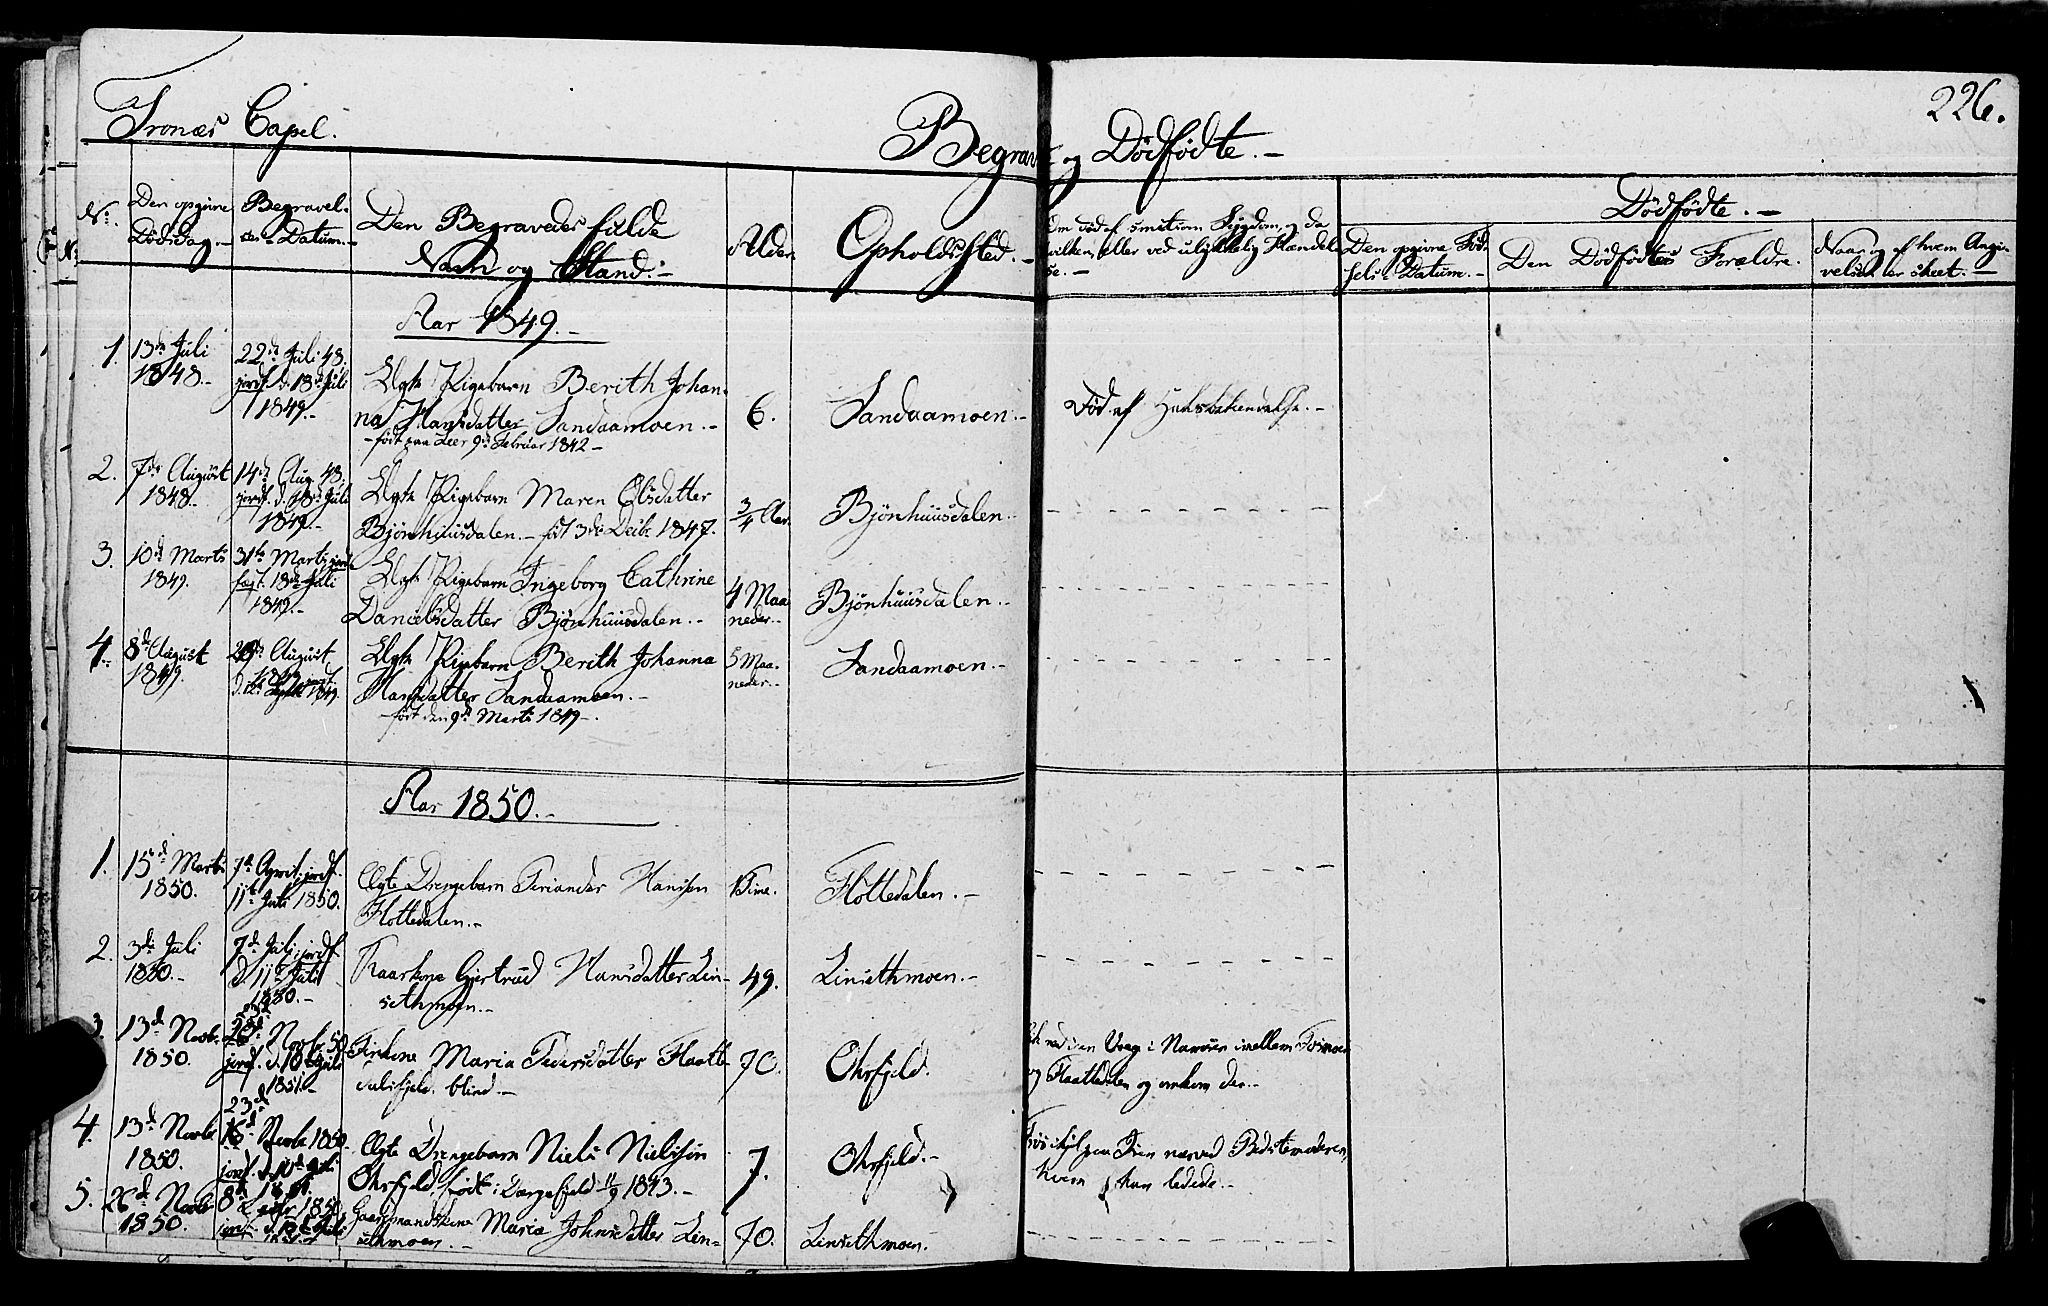 Tronæs Capel.
Begrav og Dødfødte. -
226.
No:
Den opgivne
Dødsdag. -
Begravel-
ses - Datum. -
Den Begravedes fulde
Navn og Stand: -
Alder.
Opholdssted. -
Om død af smitsom Sygdom, og da
hvilken, eller ved ulykkelig Hændel-
se. -
Dødfødte. -
Den opgivne Fød-
sels - Datum. -
Den Dødfødtes Forældre.
Naar og af hvem Angi-
velsen er skeet. -
Aar 1849. -
1.
13de Juli
1848. -
22de Juli 48.
jordf. d. 18de Juli
1849. -
Ægte Pigebarn Berith Johan-
na Hansdatter Sandaamoen. -
- født paa Leer 9de Februar 1842 -
6.
Sandaamoen. -
Død af
2.
7de August
1848. -
14de Aug. 48.
jordf. d. 18de Juli
1849. -
Ægte Pigebarn Maren Olsdatter
Bjønhuusdalen. - født 3de Decbr. 1847.
3/4 Aar.
Bjønhuusdalen. -
3.
10de Marts
1849.
31te Marts jord-
fæst. 18de Juli
1849. -
Ægte Pigebarn Ingeborg Cathrine
Danielsdatter Bjønhuusdalen. -
4 Maa-
neder. -
Bjønhuusdalen. -
4.
8de August
1849.
August
1849
Ægte Pigebarn Berith Johanna
Hansdatter Sandaamoen. -
- født den 9de Marts 1849 -
5 Maa-
neder. -
Sandaamoen. -
Aar 1850. -
1.
15de Marts
1850.
7de April, jordf.
11te Juli 1850.
Ægte Drengebarn Hansen
Flottedalen. -
1 Time.
Flottedalen. -
2.
3de Juli
1850. -
7de Juli, jordf.
d. 11te Juli
1850. -
Kaarkone Gjertrud Hansdatter Lin-
sethmoen. -
49.
Linsethmoen. -
3.
13de Novbr.
1850.
Novbr. 50
jordf. d. 10de Juli
1851. -
Maria Pedersdatter Flaatte-
blind. -
70.
Ohrfjeld.
i Namsen imellem
og Flaattedalen og omkom der. -
4.
13de Novbr
1850.
23de
Novbr 1850
jordf. d. 10de Juli
Ægte Drengebarn Niels Nielssøn
Ohrfjeld, født i 1843. -
7.
Ohrfjeld. -
Bedstemoderen,
hvem han ledede. -
5.
26de Novbr
1850.
8de Decbr 1850
jordf. d. 10de Juli
1851. -
Gaardmandskone Maria Johnsdatter Lin-
sethmoen. -
70.
Linsethmoen.